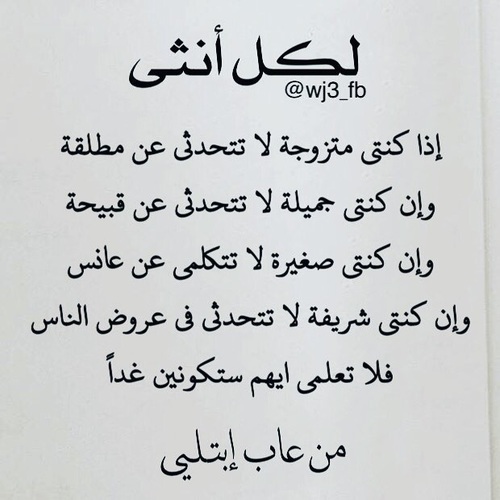 لكل أنثى
@wj3_fb
إذا كنتى متزوجة لا تتحدثى عن مطلقة
وإن كنتى جميلة لا تتحدثى عن قبيحة
وإن كنتى صغيرة لا تتكلمى عن عانس
وإن كنتى شريفة لا تتحدثى فى عروض الناس
فلا تعلمى ايهم ستكونين غداً
من عاب إبتلي